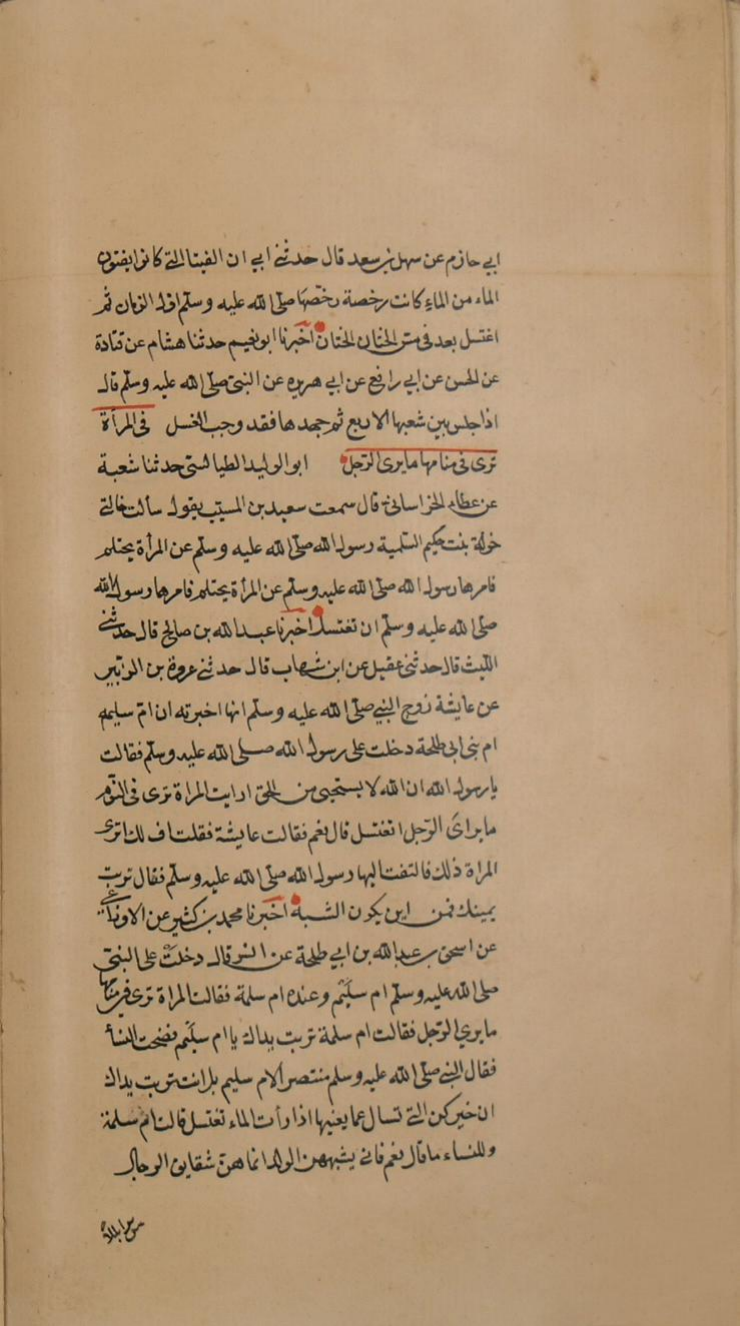 ابي حازم عن سهل بن سعد قال حدثني ابي ان الفتيا التي كانوا يفتون
الماء من الماء كانت رخصة رخصها صلى الله عليه وسلم اول الزمان ثم
اغتسل بعد في مس الختان الختان اخبرنا ابو نعيم حدثنا هشام عن قتادة
عن الحسن عن ابي رافع عن ابي هريره عن النبي صلى الله عليه وسلم قال
اذا جلس بين شعبها الاربع ثم جهدها فقد وجب الغسل في المرأة
ترى في منامها ما يرى الرجل ابو الوليد الطيالسي حدثنا شعبة
عن عطاء الخراساني قال سمعت سعيد بن المسيب يقول سالت خالتي
خولة بنت حكيم السلمية رسول الله صلى الله عليه وسلم عن المرأة يحتلم
فامرها رسول الله صلى الله عليه وسلم عن المرأة يحتلم فامرها رسول الله
صلى الله عليه وسلم ان تغتسل اخبرنا عبد الله بن صالح قال حدثني
الليث قال حدثني عقيل عن ابن شهاب قال حدثني عروة بن الزبير
عن عايشة زوج النبي صلى الله عليه وسلم انها اخبرته ان ام سليم
ام بني ابي طلحة دخلت على رسول الله صلى الله عليه وسلم فقالت
يا رسول الله ان الله لا يستحيى من الحق ارايت المراة ترى في النوم
ما يرى الرجل اتغتسل قال نعم فقالت عايشة فقلت اف لك اترى
المراة ذلك فالتفت اليها رسول الله صلى الله عليه وسلم فقال تربت
يمينك فمن اين يكون الشبه اخبرنا محمد بن كثير عن الاوزاعي
عن اسحق بن عبد الله بن ابي طلحة عن انس قال دخلت على النبي
صلى الله عليه وسلم ام سليم وعنده ام سلمة فقالت المراة ترى في منامها
ما يري الرجل فقالت ام سلمة تربت يداك يا ام سليم فضحت النسأ
فقال النبي صلى الله عليه وسلم منتصرا لام سليم بل انت تربت يداك
ان خيركن التي تسال عما يعنيها اذا رأت الماء تغتسل قالت ام سلمة
وللنساء ما قال نعم فاني يشبههن الولد انما هن شقايق الرجال